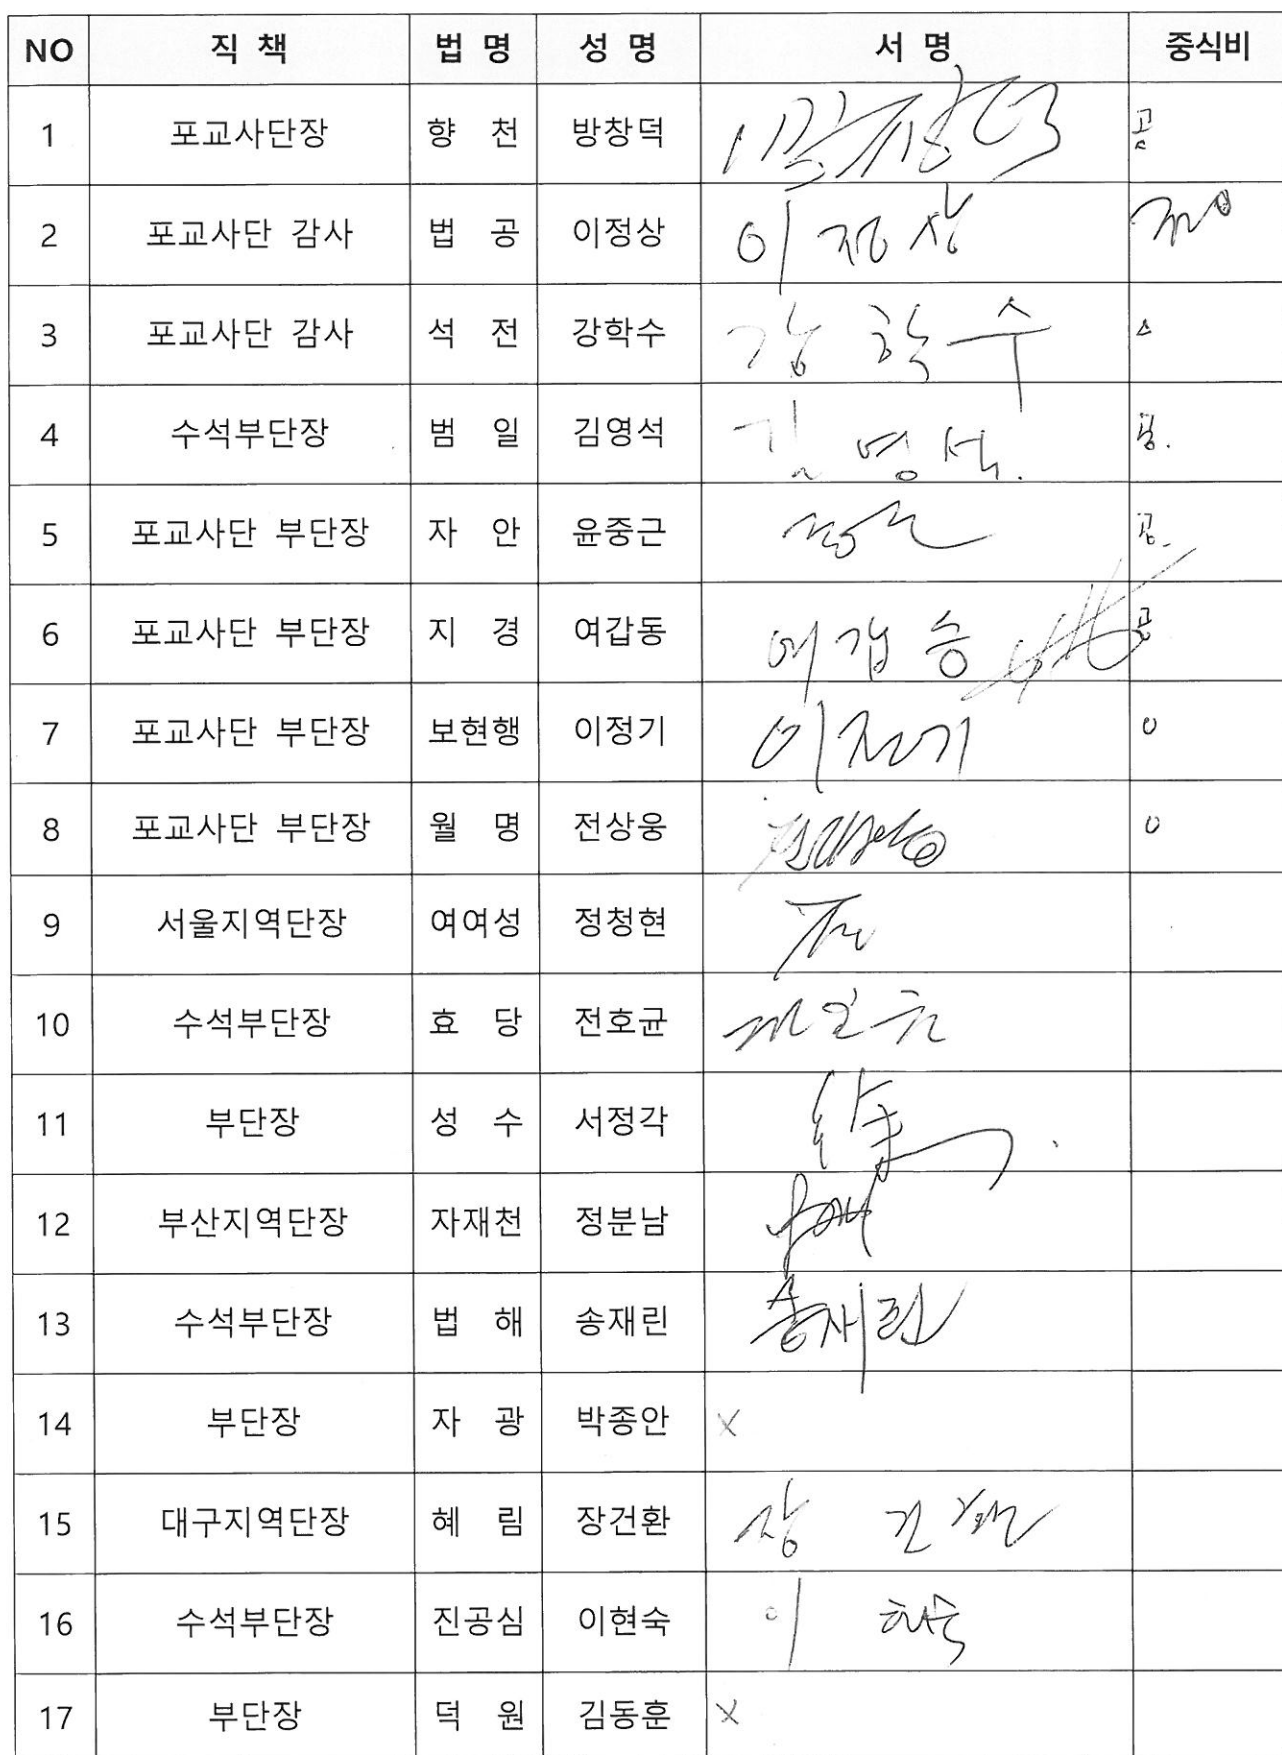 NO 직 책 법 명 성 명 서 명 중식비
1 포교사단장 향 천 방창덕 방창덕 공
2 포교사단 감사 법 공 이정상 이정상
3 포교사단 감사 석 전 강학수 강학수
4 수석부단장 범 일 김영석 김영석.
5 포교사단 부단장 자 안 윤중근
6 포교사단 부단장 지 경 여갑동
7 포교사단 부단장 보현행 이정기 이정기 O
8 포교사단 부단장 월 명 전상웅 O
9 서울지역단장 여여성 정청현
10 수석부단장 효 당 전호균
11 부단장 성 수 서정각
12 부산지역단장 자재천 정분남
13 수석부단장 법 해 송재린 송재린
14 부단장 자 광 박종안 X
15 대구지역단장 혜 림 장건환 장건환
16 수석부단장 진공심 이현숙 이현숙
17 부단장 덕 원 김동훈 X